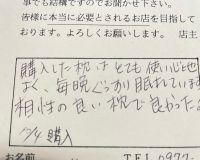 事でも結構ですのでお聞かせ下さい。
皆様に本当に必要とされるお店を目指して
おります。よろしくお願いします。 店主
購入した枕はとても使い心地
よく、毎晩ぐっすり眠れています
相性の良い枕で良かった。
購入
お名前
TEL 0977-